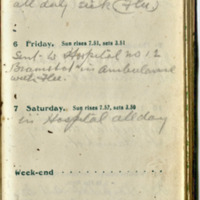 all day sick (Flu)
6 Friday. Sun rises 7.51, sets 3.51
Sent to Hospital no 12
"Bramshot" in Ambulance
with Flu.
7 Saturday. Sun rises 7.52, sets 3.50
in Hospital all day
Week-end